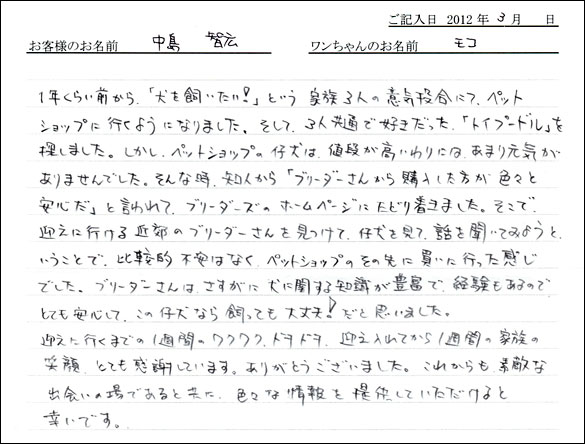 ご記入日 2012 年 3 月 日
お客様のお名前 中島 智宏 ワンちゃんのお名前 モコ
1年くらい前から、「犬を飼いたい!」という 家族3人の意気投合にて、ペット
ショップに行くようになりました。そして、3人共通で好きだった、「トイプードル」を
探しました。しかし、ペットショップの仔犬は、値段が高いわりには、あまり元気が
ありませんでした。そんな時、知人から「ブリーダーさんから購入した方が色々と
安心だ」と言われて、ブリーダーズのホームページにたどり着きました。そこで、
迎えに行ける近郊のブリーダーさんを見つけて、仔犬を見て、話を聞いてみようと
いうことで、比較的不安はなく、ペットショップのその先に買いに行った感じ
でした。ブリーダーさんは、さすがに犬に関する知識が豊富で、経験もあるので
とても安心して、この仔犬なら飼っても大丈夫!だと思いました。
迎えに行くまでの1週間のワクワク、ドキドキ、迎え入れてから1週間の家族の
笑顔、とても感謝しています。ありがとうございました。これからも、素敵な
出会いの場であると共に、色々な情報を提供していただけると
幸いです。